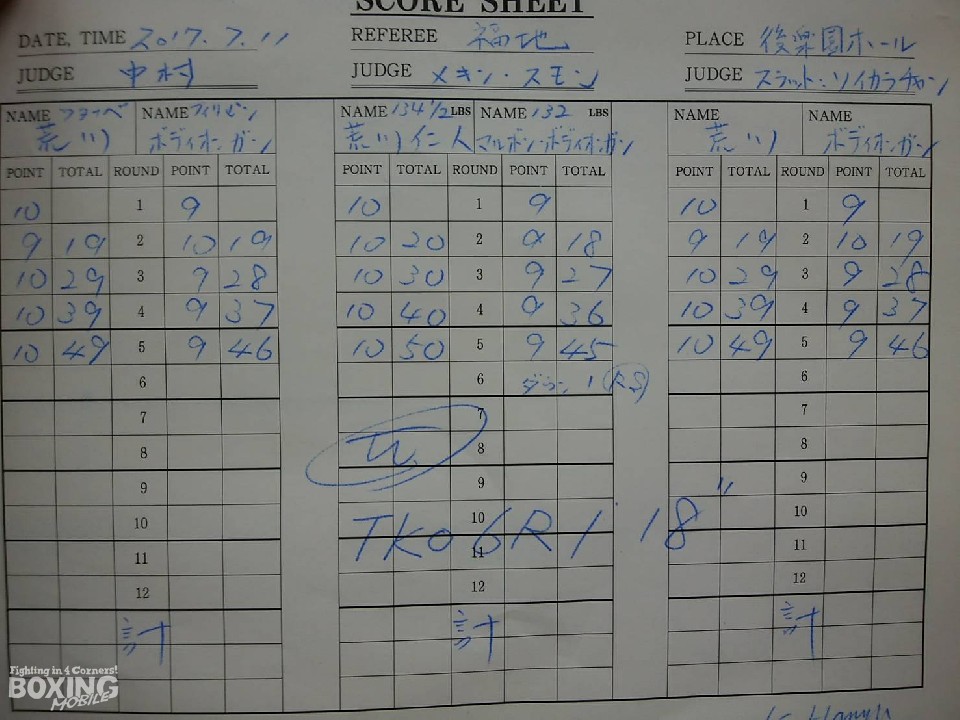 SCORE SHEET
DATE, TIME 2017.7.11 REFEREE 福地 PLACE 後楽園ホール
JUDGE 中村 JUDGE メキン・スモン JUDGE スラット・ソイカラチャン
NAME NAME フィリピン NAME 134 1/2 LBS NAME 132 LBS NAME NAME
荒川 ボディオンガン 荒川仁人 マルボン・ボディオンガン 荒川 ボディオンガン
POINT TOTAL ROUND POINT TOTAL POINT TOTAL ROUND POINT TOTAL POINT TOTAL ROUND POINT TOTAL
10 1 9 10 1 9 10 1 9
9 19 2 10 19 10 20 2 9 18 9 19 2 10 19
10 29 3 9 28 10 30 3 9 27 10 29 3 9 28
10 39 4 9 37 10 40 4 9 36 10 39 4 9 37
10 49 5 9 46 10 50 5 9 45 10 49 5 9 46
6 6 ダウン 1 RS 6
7 7 7
8 W 8 8
9 9 9
10 10 10
TKO 6R 1' 18"
11 11 11
12 12 12
計 計 計
Fighting in 4 Corners!
BOXING
MOBILE